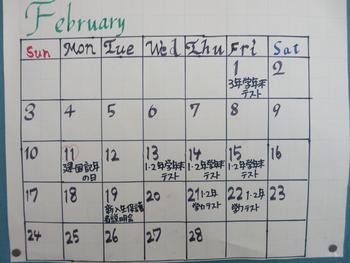 February
Sun Mon Tue Wed Thu Fri Sat
1 2
3年学年末
テスト
3 4 5 6 7 8 9
10 11 12 13 14 15 16
建国記念 1・2年学年末 1・2年学年末 1・2年学年末
の日 テスト テスト テスト
17 18 19 20 21 1・2年 22 1・2年 23
新入生保護 学力テスト 学力テスト
者説明会
24 25 26 27 28